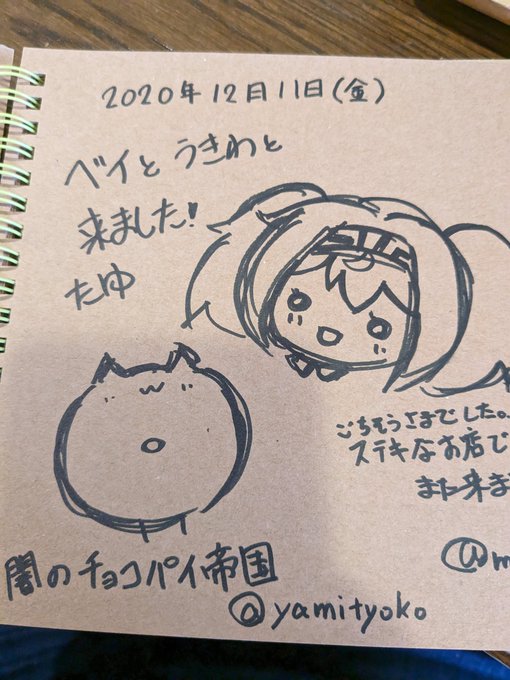 2020年12月11日(金)
ベイと うきわと
来ました!
たゆ
ごちそうさまでした。
ステキなお店で
また来ま
@m
闇のチョコパイ帝国
@yamityoko